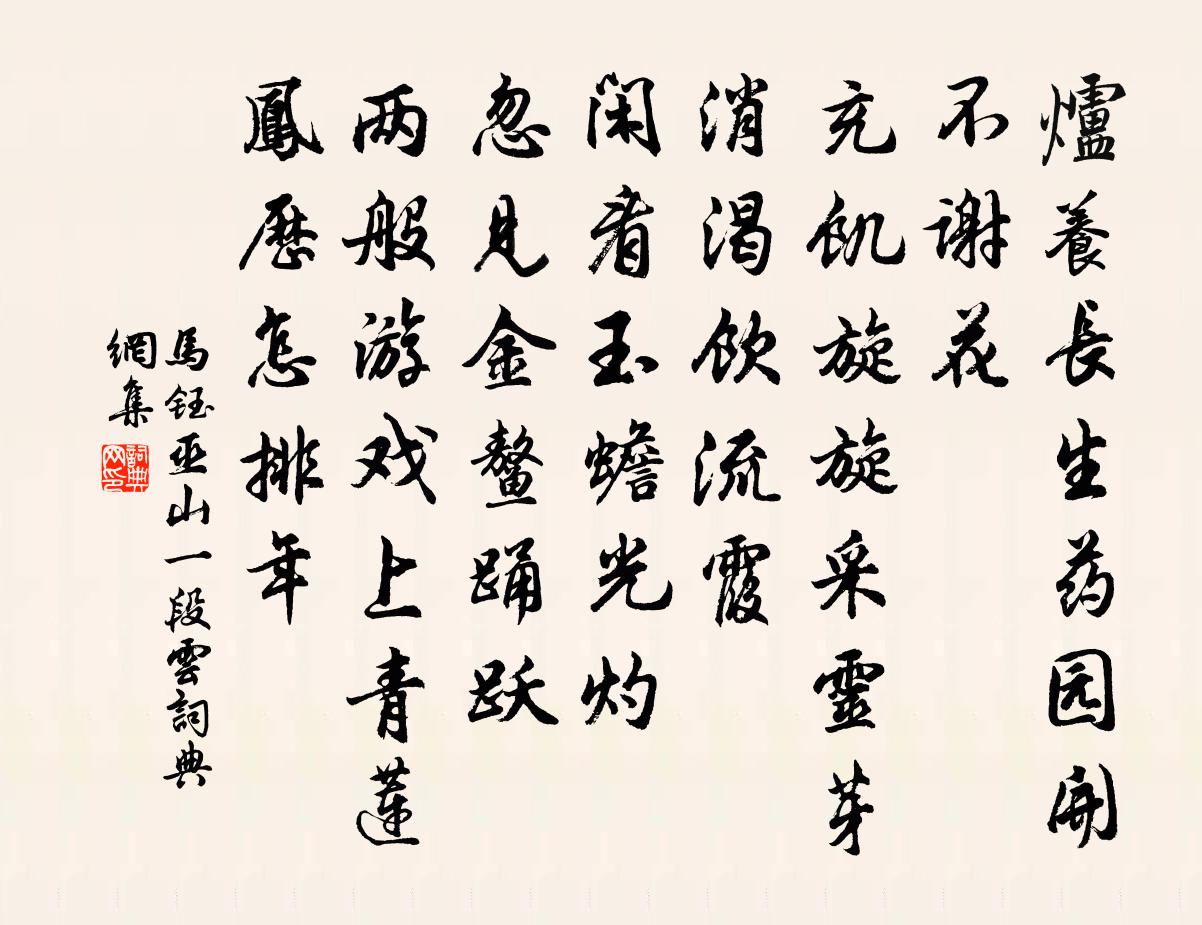 爐養長生药园開
不谢花
充飢旋旋采靈芽
消渴飲流霞
闲看玉蟾光灼
忽見金鳌踊跃
两般游戏上青蓮
鳳歷怎排年
馬鈺巫山一段雲詞典
網集
詞典
网印